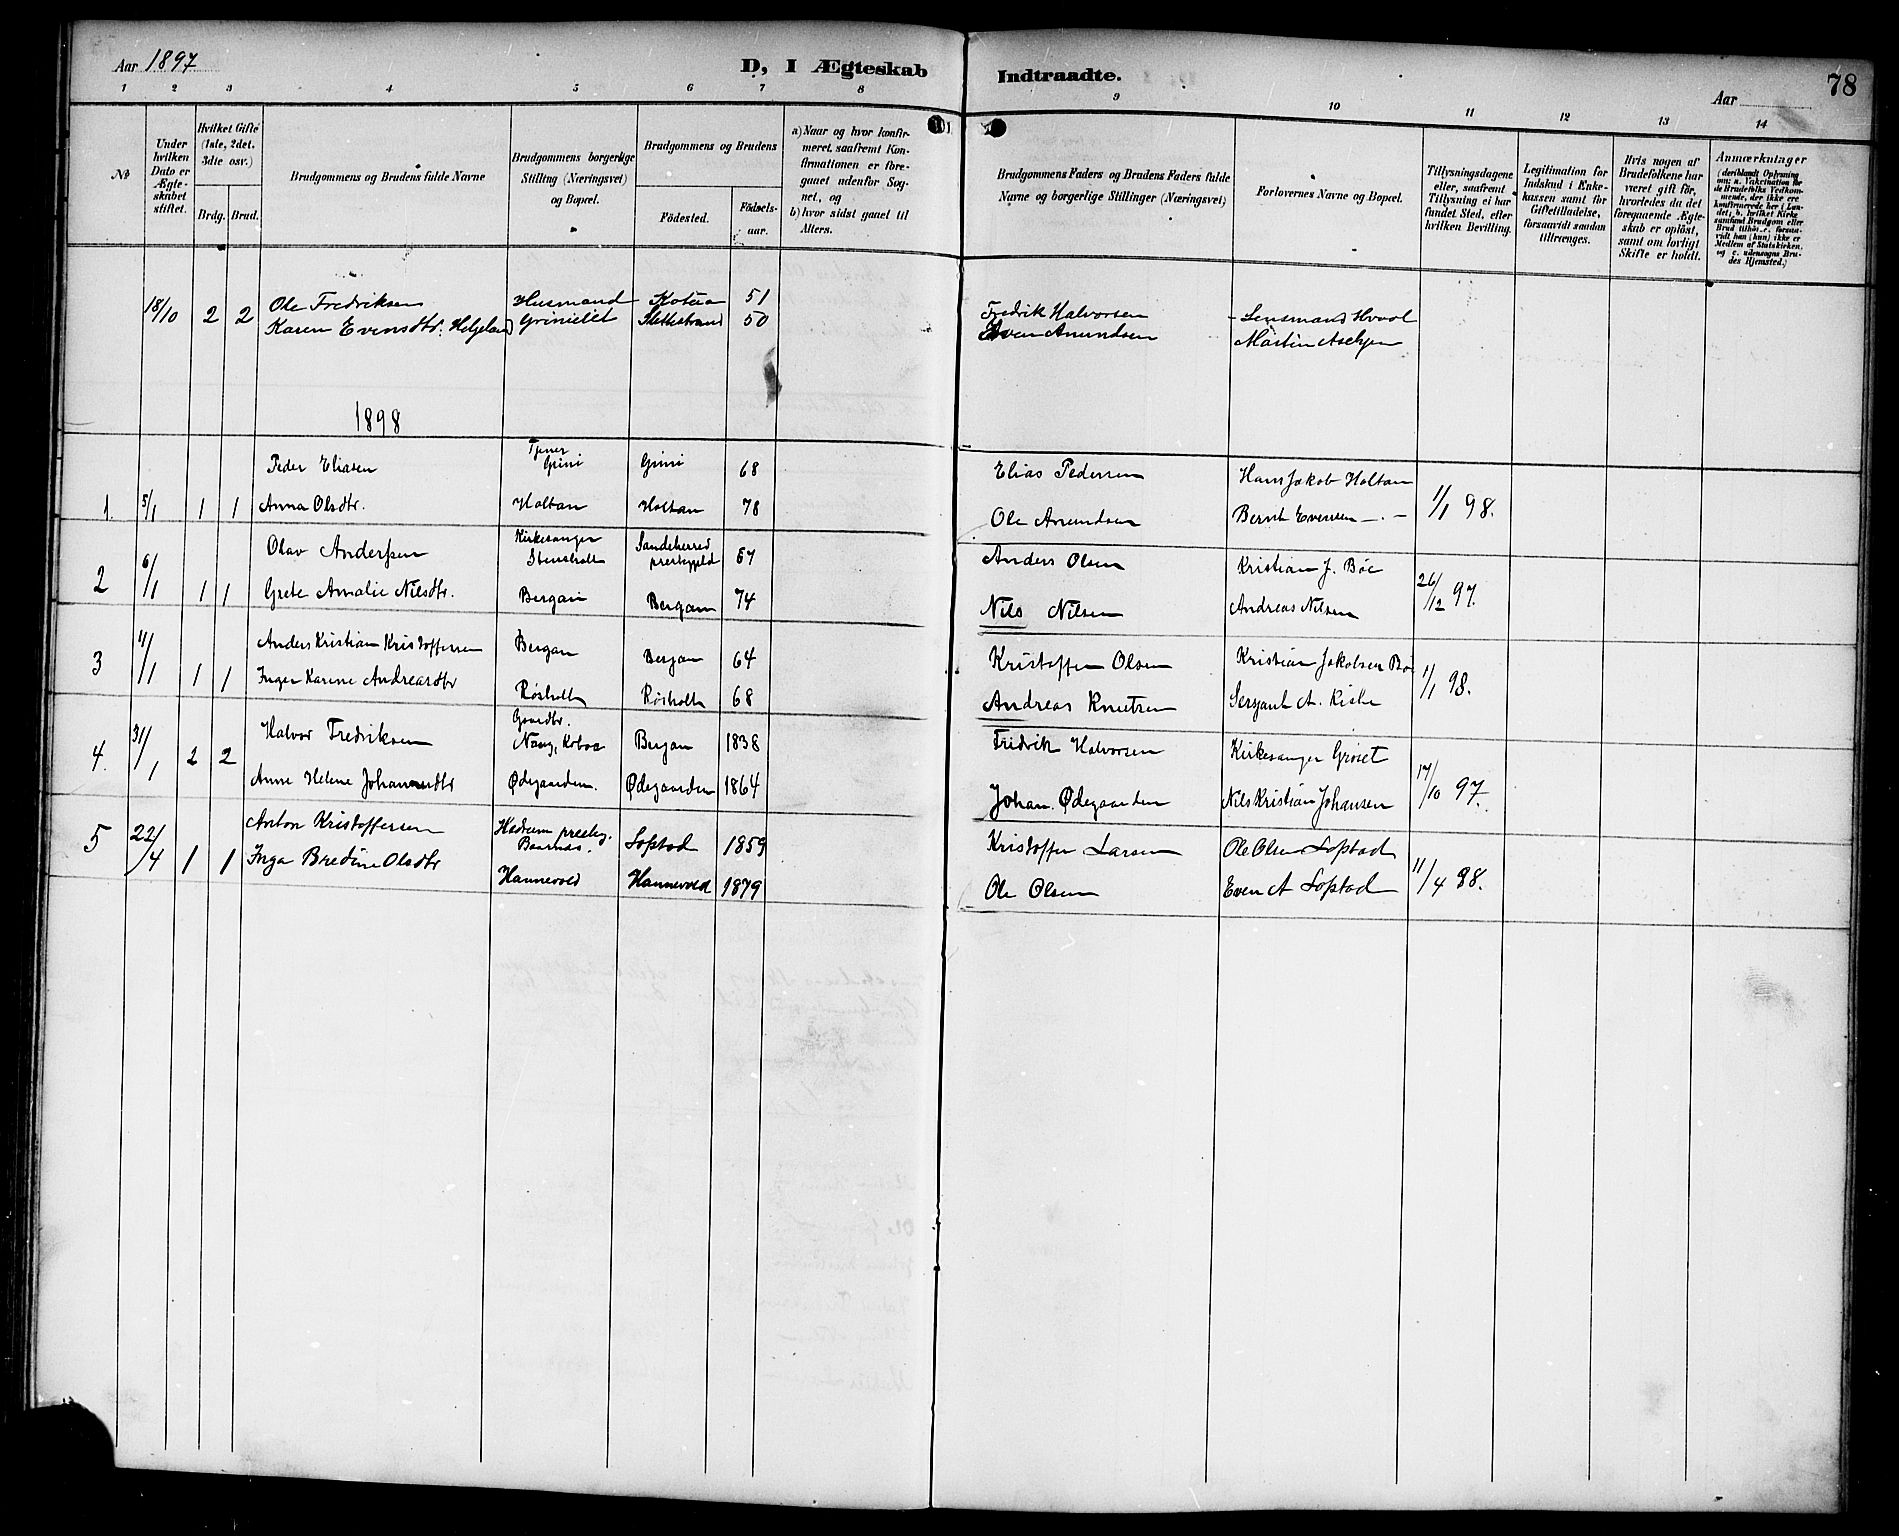 Aar 1897
D, I Ægteskab Indtraadte.
78
Aar
1 2 3 4 5 6 7 8 9 10 11 12 13 14
No
Under hvilken Dato er Ægteskabet stiftet.
Hvilket Gifte (1ste, 2det, 3die osv.)
Brdg. Brud.
Brudgommens og Brudens fulde Navne
Brudgommens borgerlige Stilling (Næringsvei) og Bopæl.
Brudgommens og Brudens
Födested.
Födselsaar.
a) Naar og hvor konfirmeret, saafremt Konfirmationen er foregaaet udenfor Sognet, og
b) hvor sidst gaaet til Alters.
Brudgommens Faders og Brudens Faders fulde Navne og borgerlige Stillinger (Næringsvei)
Forlovernes Navne og Bopæl.
Tillysningsdagene eller, saafremt Tillysning ei har fundet Sted, efter hvilken Bevilling.
Legitimation for Indskud i Enkekassen samt for Giftetilladelse, forsaavidt saadan tiltrænges.
Hvis nogen af Brudefolkene har været gift för, hvorledes da det foregaaende Ægteskab er oplöst, samt om lovligt Skifte er holdt.
Anmærkninger
18/10 2 2 Ole Fredriksen Husmand Kotua 51 Fredrik Halvorsen Lensmand Hvaal
Karen Evensdtr. Helgeland Grinilet Slettestrand 50 Even Amundsen Martin Aschjem
1898
Peder Eliasen Tjener Grini Grini 68 Elias Pedersen Hans Jakob Holtan
1. 5/1 1 1 Anna Olsdtr. Holtan Holtan 78 Ole Amundsen Bernt Evensen -.- 1/1 98.
Olav Andersen Kirkesanger Stensholt Sandeherred prestegjeld 67 Anders Olsen Kristian J. Böe
2 6/1 1 1 Grete Amalie Nilsdtr. Bergan Bergan 74 Nils Nilsen Andreas Nilsen 26/12 97.
Anders Kristian Kristoffersen Bergan Bergan 64 Kristoffer Olsen Kristian Jakobsen Bö
3 11/1 1 1 Inger Karine Andreasdtr Rösholt Rösholt 68 Andreas Knutsen Sersjant A. 1/1 98.
Halvor Fredriksen Gaardbr. Kotua Bergan 1838 Fridrik Halvorsen Kirkesanger Griset
4. 31/1 2 2 Anne Helene Johannesdtr Ødegaarden. Ødegaarden 1864 Johan. Ødegaarden Nils Kristian Johansen 17/10 97.
5 22/4 1 1 Anton Kristoffersen Hedrum presteg. Sopstad 1859 Kristoffer Larsen Ole Olsen Sopstad
Inga Bredine Olsdtr Hannevold Hannevold 1879 Ole Olsen Even A Sopstad 11/4 98.